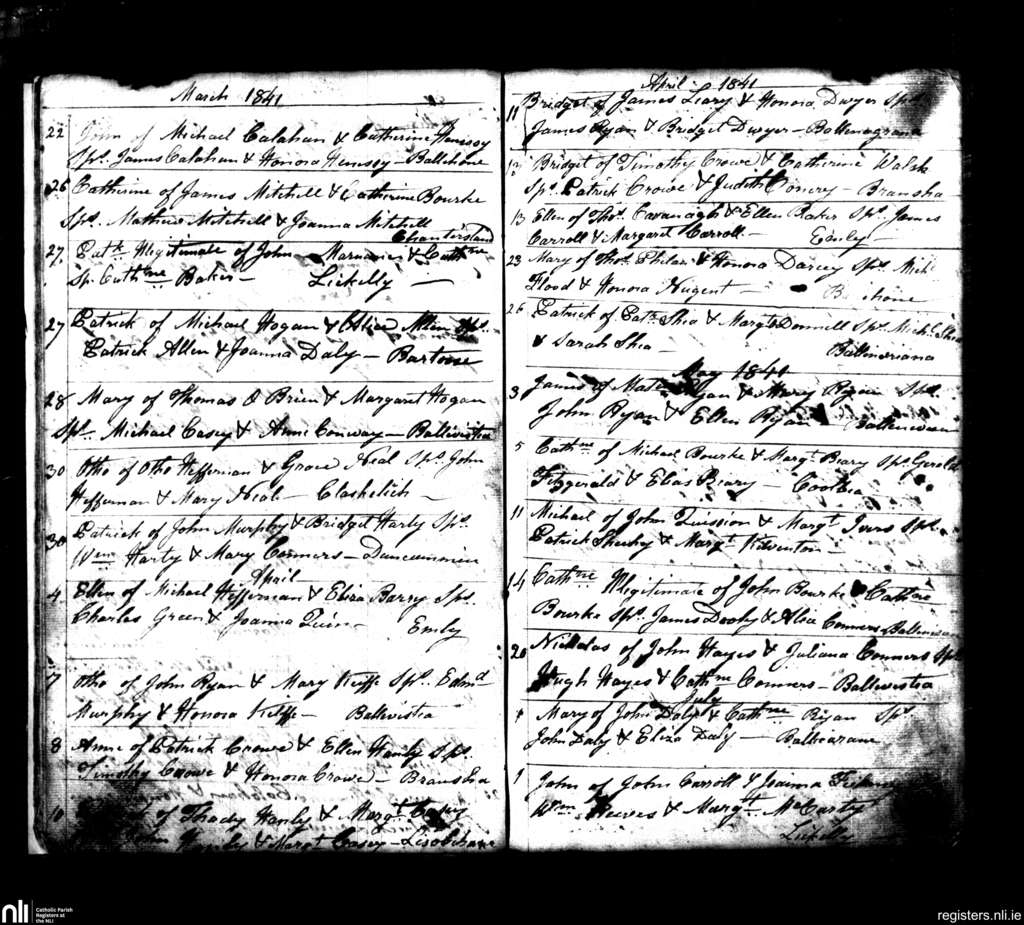 March 1841
22 John of Michael Calahan & Catherine Hennssy
Sps. James Calahan & Honora Hennssy - Ballihone
26 Catherine of James Mitchell & Catherine Bourke
Sps. Mathew Mitchell & Joanna Mitchell
Chanterisland
27 Patk. Illigitimate of John & Cathne
Sp. Cathne Baker - Lickelly -
27 Patrick of Michael Hogan & Alice Allen Sps.
Patrick Allen & Joanna Daly - Bartoose
28 Mary of Thomas O Brien & Margaret Hogan
Sps. Michael Casey & Anne Conway - Ballivistea
30 Otho of Otho Heffernan & Grace Neal Sps. John
Heffernan & Mary Neal - Clashelich -
30 Patrick of John Murphy & Bridget Harty Sps.
Wm Harty & Mary Connors - Duncummin
April
4 Ellen of Michael Heffernan & Eliza Barry Sps.
Charles Green & Joanna Quin - Emly
7 Otho of John Ryan & Mary Keiffe Sps. Edmd
Murphy & Honora Kelffe - Ballivistia
8 Anne of Patrick Crowe & Ellen Hanly Sps.
Timothy Crowe & Honora Crowe - Bransha
10 of Thady Hanly & Margt. Casey
Hanly & Margt Casey - Lisobihane
April 1841
11 Bridget of James Leary & Honora Dwyer Sps.
James Ryan & Bridget Dwyer - Ballenagrana
Bridget of Timothy Crowe & Catherine Walsh
Sps. Patrick Crowe & Judith Conery - Bransha
13 Ellen of Thos. Cavanagh & Ellen Baker Sps. James
Carroll & Margaret Carroll - Emly -
23 Mary of Thos. Phelan & Honora Darcey Sps. Mich
Flood & Honora Nugent -
26 Patrick of Patk. Shea & Margt. Donnell Sps. Michl. Shea
& Sarah Shea - Ballineriana
May 1841
3 James of & Mary Ryan Sps.
John Ryan & Ellen Ryan
5 Cathne of Michael Bourke & Margt. Beary Sps. Gerold
Fitzgerald & Elias Beary - Coothea
11 Michael of John Quission & Margt. Ivers Sps.
Patrick Sheehy & Margt. Kiventon -
14 Cathne Illigitimate of John Bourke & Cathne
Bourke Sps. James Dooly & Alia Connors
20 Nicholas of John Hayes & Juliana Connors Sps
Hugh Hayes & Cathne Connors - Ballivistia
July
Mary of John Daly & Cathne Ryan Sps
John Daly & Eliza Daly - Ballicarane
1 John of John Carroll & Joanna
Wm Reeves & Margt. McCarty
Lickelly
nli Catholic Parish
Registers at
the NLI
registers.nli.ie